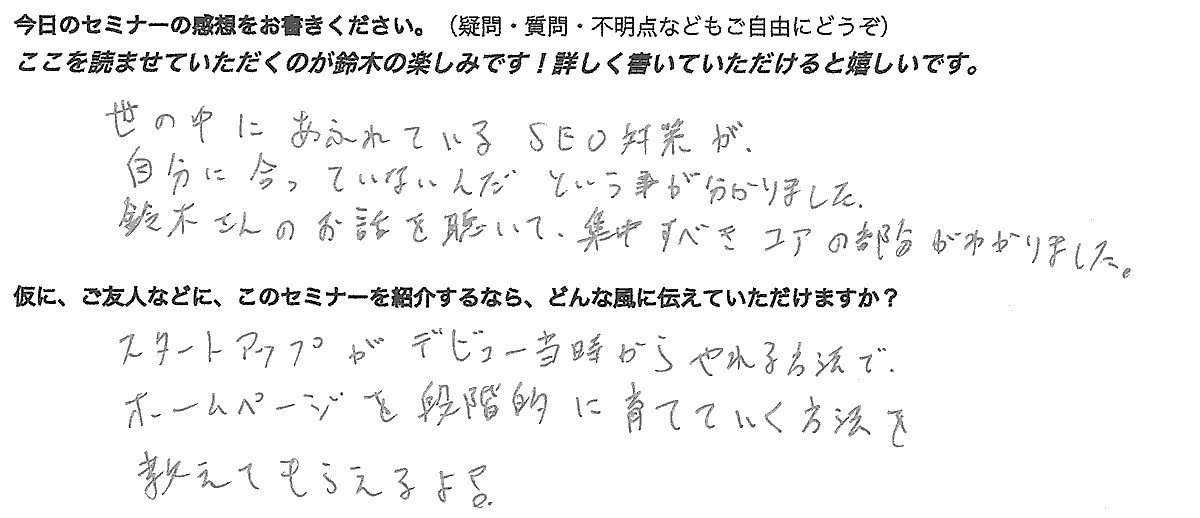 今日のセミナーの感想をお書きください。（疑問・質問・不明点などもご自由にどうぞ）
ここを読ませていただくのが鈴木の楽しみです！詳しく書いていただけると嬉しいです。
世の中にあふれているSEO対策が、
自分に合っていないんだという事が分かりました。
鈴木さんのお話を聴いて、集中すべきコアの部分がわかりました。
仮に、ご友人などに、このセミナーを紹介するなら、どんな風に伝えていただけますか？
スタートアップがデビュー当時からやれる方法で、
ホームページを段階的に育てていく方法を
教えてもらえるよ。